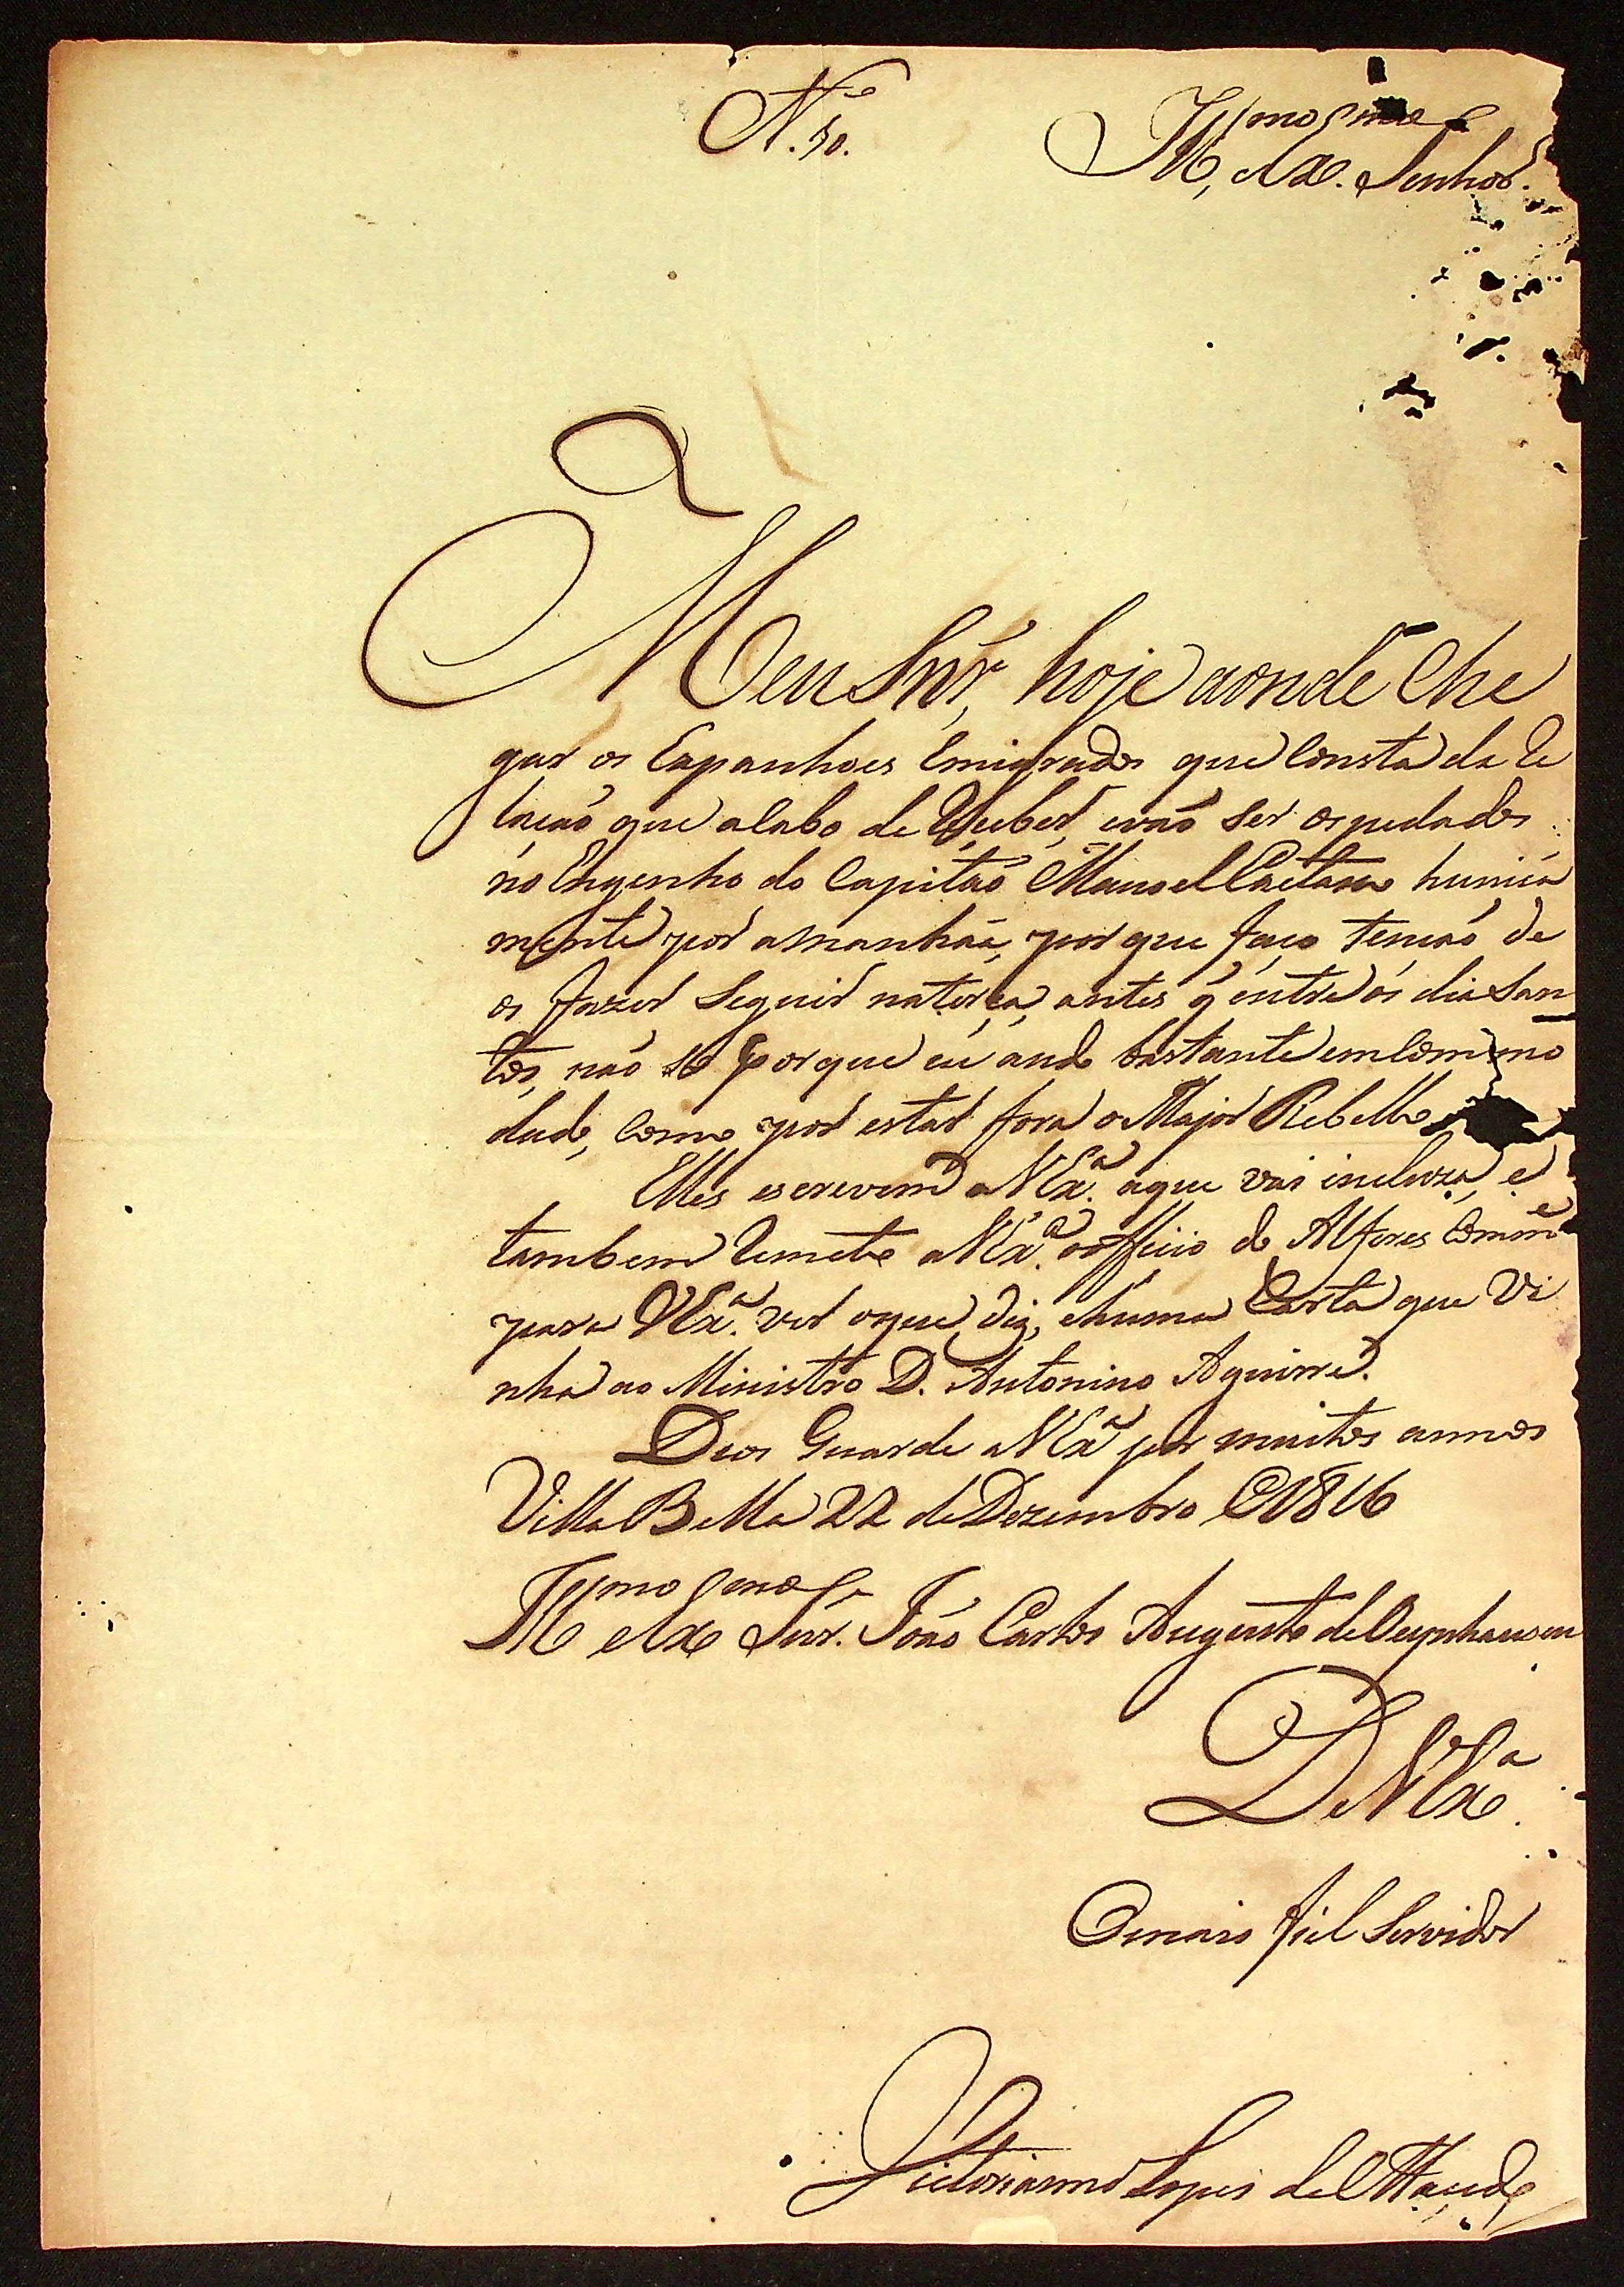 N.º 50.
Ill.mo e Ex.mo Senhor.
Meu Snr̃, hoje aonde Che
gar os Espanhoes Emigrados que Consta da Re
lação que acabo de receber, e vaó ser ospedados
no Engenho do Capitaó Manoel Caetano hunica
mente por a manhãa, por que faço tençaó de
os fazer Seguir na terça, antes q̃ entre os dia San
tos, naó só porque eu ando bastante em Commo
dado, Como por estar fora o Major Rebello
Elles escrevem a V Ex.ª aque vai incluza, e
tambem Remeto a V Ex.ª o officio do Alferes Comm.e
para V Ex.ª ver oque diz, e huma Carta que Vi
nha ao Ministro D. Antonino Aguirre.
Deos Guarde a V Ex.ª por muitos annos
Villa Bella 22 de Dezembro de 1816
Ill.mo e Ex.mo Snr. Joaó Carlos Augusto de Oeynhausen
De V Ex.ª
O mais fiel Servidor
Victorianno Lopes de Maced.o